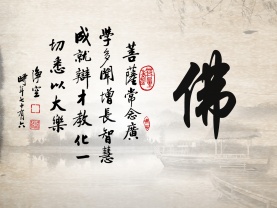 佛
菩薩常念廣
學多聞增長智慧
成就辯才教化一
切悉以大樂
淨空
時年七十有六